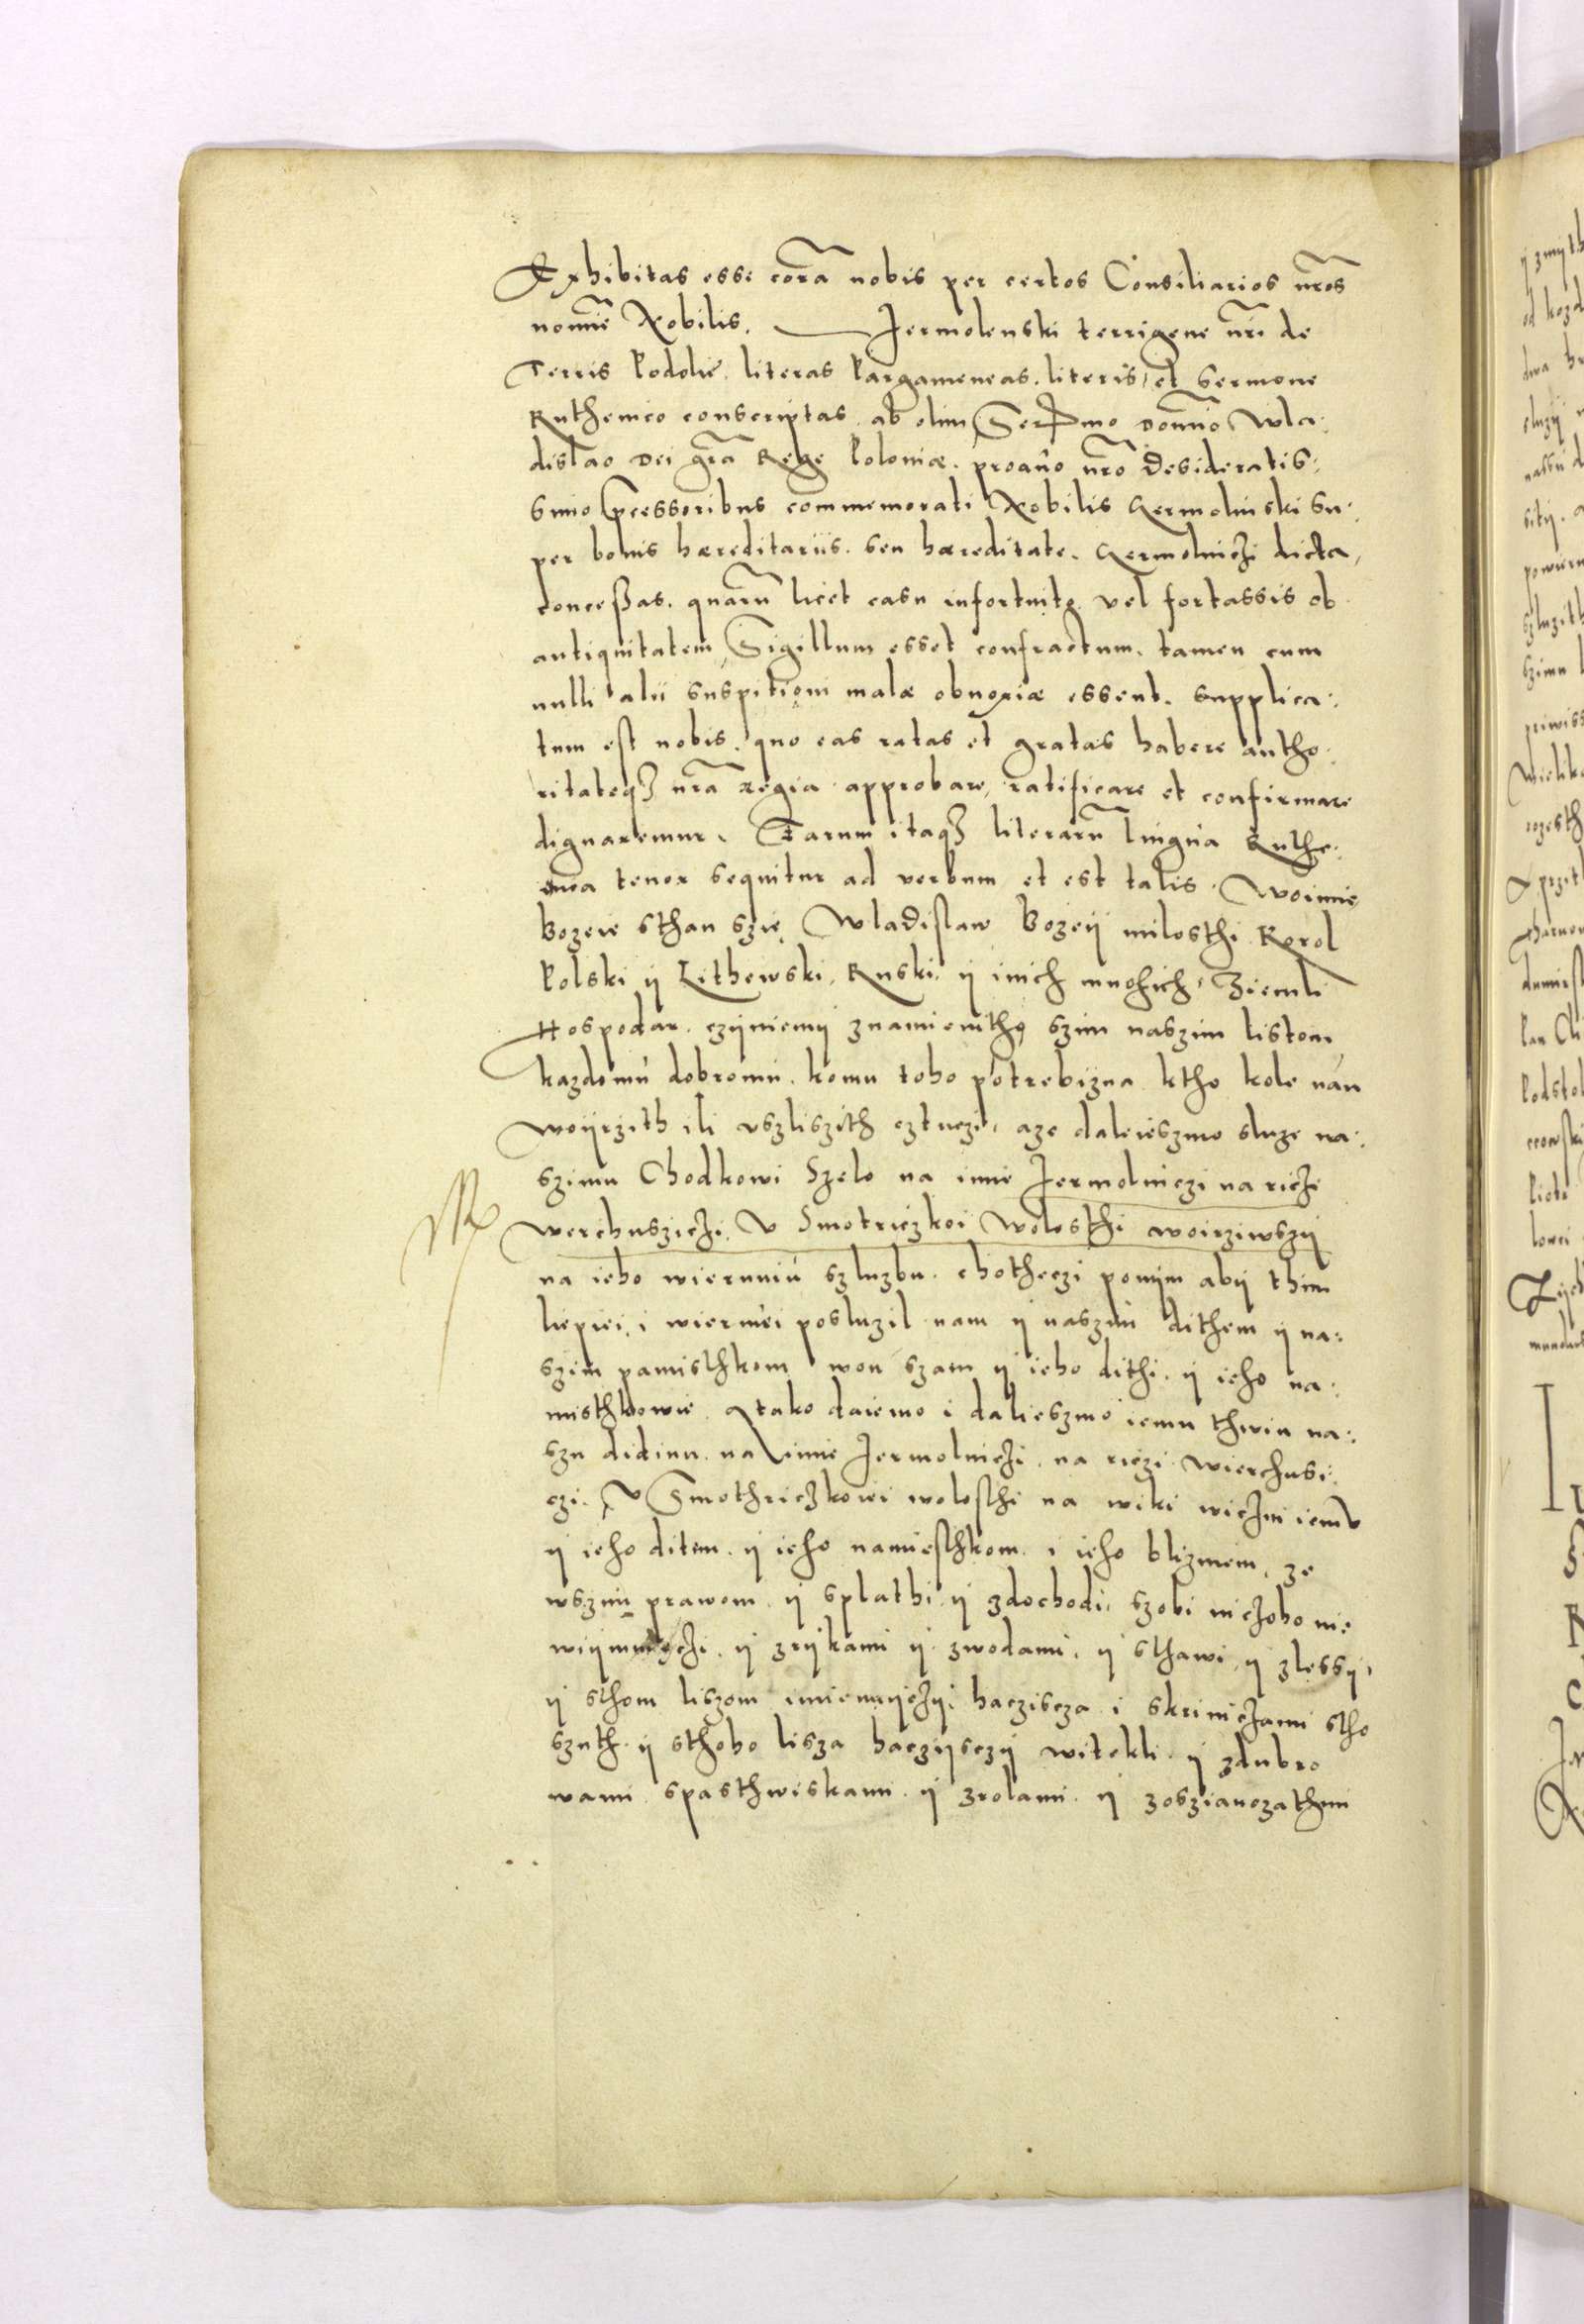 Exhibitas esse cora nobis per certos Consiliarios nros
nomine Nobilis. Jermolenski terrigene nri de
Terris Podolie. literas Pargameneas. literis, et sermone
Ruthenico conscriptas. ab olim Sermo domino Wla:
dislao Dei gra Rege Poloniæ. proavo nro Desideratis:
simo pcessoribus commemorati Nobilis Germolinski su:
per bonis hæreditariis. seu hæreditate. Germoliniczi dicta,
conceßas. quaru licet casu infortuito vel fortassis ob
antiquitatem Sigillum esset confractum. tamen cum
nulli alii suspitioni malæ obnoxiæ essent. supplica:
tum est nobis. quo eas ratas et gratas habere autho:
ritateq3 nra regia approbare, ratificare et confirmare
dignaremur. Earum itaq3 literaru lingua Ruthe:
nica tenor sequitur ad verbum et est talis. Woimie
Bozeie sthan szie Wladislaw Bozeij milosthi Korol
Polski ij Lithewski, Ruski ij inich mnohich, Ziemli
Hospodar. czijniemij znamienitho szim naszim listom
kazdomu dobromu. komu toho potrebizna ktho kole nan
woijrzith ili vszliszith cztuczi, aze daleieszmo sluze na:
szimu Chodkowi Szelo na imie Jermoliniczi na riczi
werchuszieczi, v Smotriczkoi wolosthi woirziwszij
na ieho wiernuiu szluzbu. chotheczi pomijm abij thim
liepiei i wiernei posluzil nam ij naszim dithem ij na:
szim pamisthkom won szam ij ieho dithi. ij ieho na:
misthkowie. A tako daiemo i dalieszmo iemu thwiu na:
szu didinu. na imie Jermoliniczi. na riczi wierchusi:
czi. v Smothriczkowi wolosthi na wiki wiczni iemv
ij ieho ditem. ij ieho namiesthkom. i ieho blizniem, ze
wszimi prawom. ij splathi ij zdochodi, szobi niczoho nie
wijmuiuczi. ij zrijkami ij zwodami, ij sthawi, ij zlessij,
ij sthom liszom imieniijczij hacziscza i skriniczami stho
szuth. ij sthoho lisza haczijsczij witekli. ij zdubro
wami spasthwiskami. ij zrolami. ij zoszianozathmi